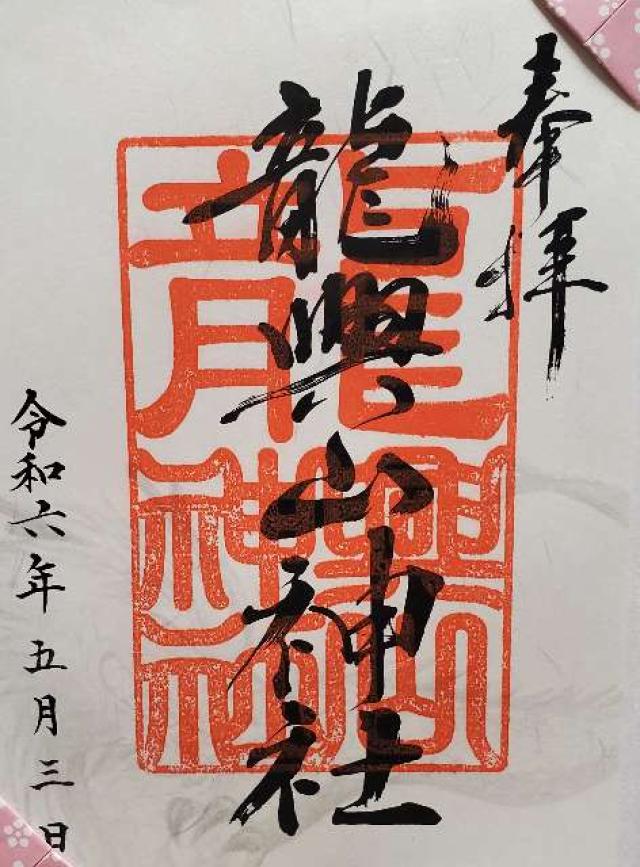 奉拝
龍興山神社
龍興山神社
令和六年五月三日